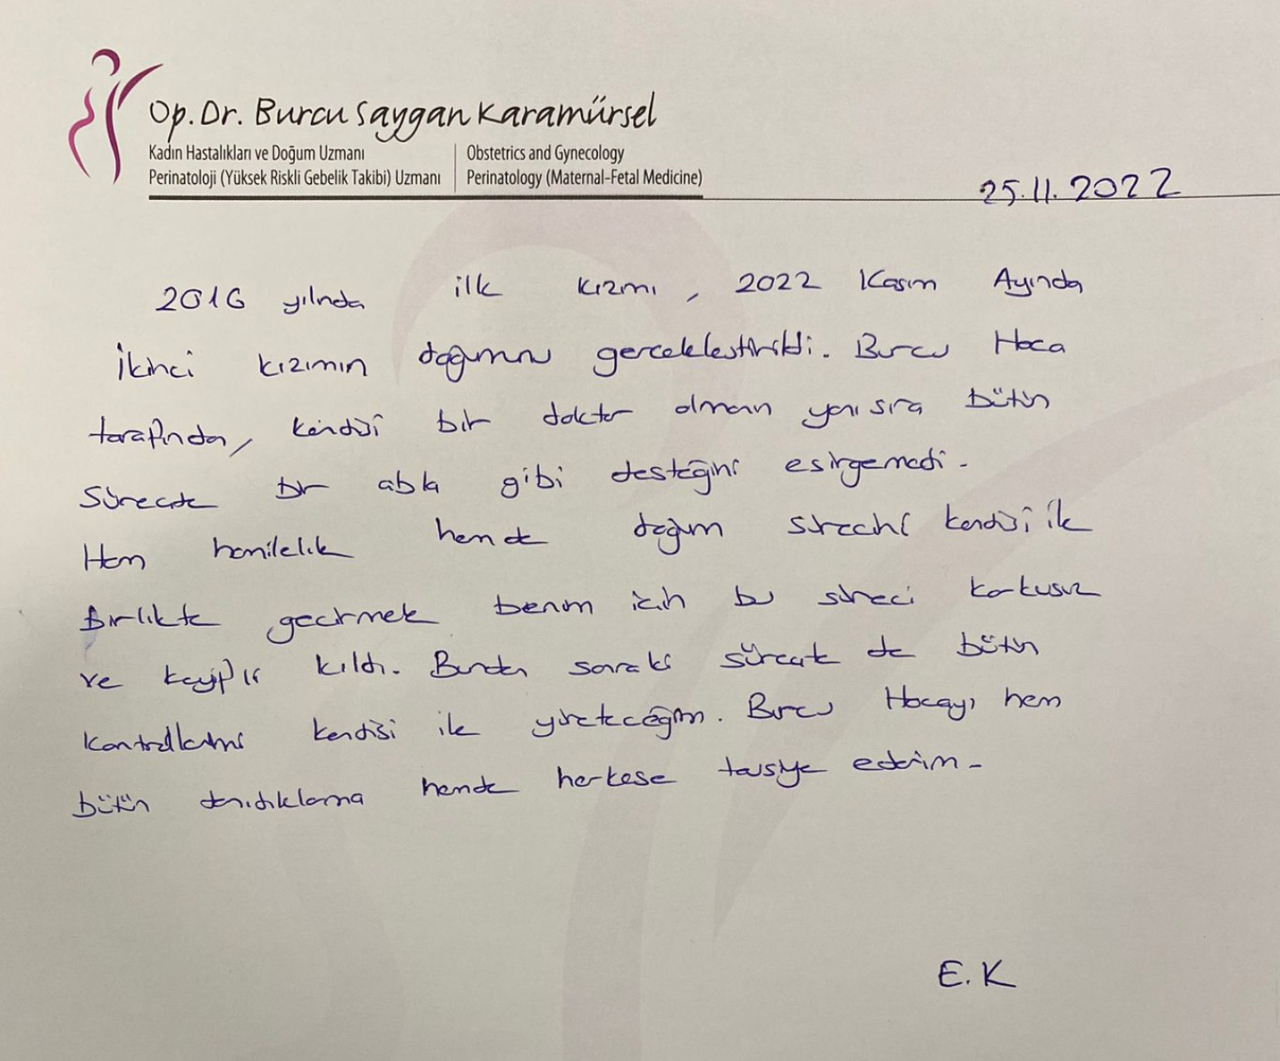 Op. Dr. Burcu Saygan Karamürsel
Kadın Hastalıkları ve Doğum Uzmanı
Perinatoloji (Yüksek Riskli Gebelik Takibi) Uzmanı
Obstetrics and Gynecology
Perinatology (Maternal-Fetal Medicine)
25.11.2022
2016 yılında ilk kızımı, 2022 Kasım Ayında
İkinci kızımın doğumunu gerceklestirildi. Burcu Hoca
tarafından, kendisi bir doktor olmanın yanı sıra bütün
Sürecte bir abla gibi desteğini esirgemedi.
Hem hamilelik hemde doğum sürecini kendisi ile
Birlikte gecirmek benim icin bu süreci korkusuz
ve keyifli kıldı. Bundan sonraki sürecte de bütün
kontrollerimi kendisi ile yürüteceğim. Burcu Hocayı hem
bütün tanıdıklarıma hemde herkese tavsiye ederim.
E.K